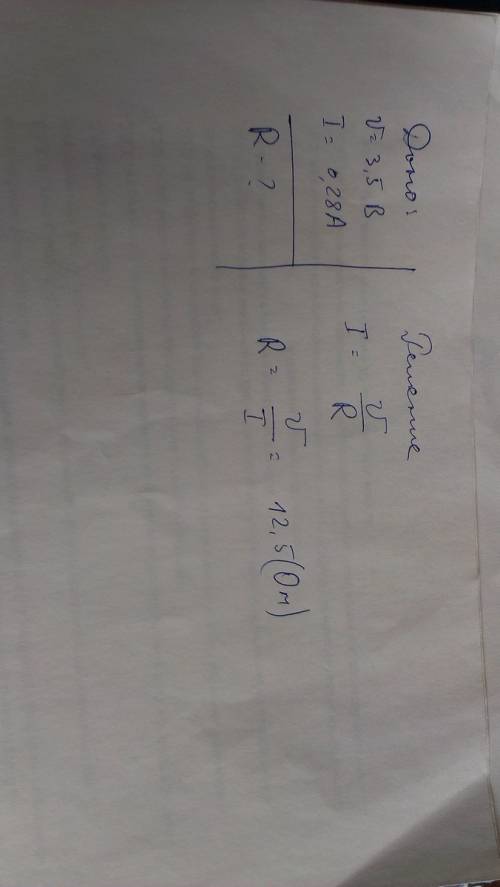 Дано:
U = 3,5 В
I = 0,28 А
R - ?
Решение
I = U/R
R = U/I = 12,5 (Ом)